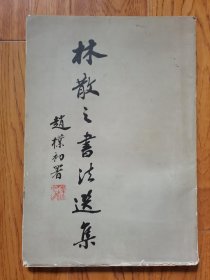 林散之書法選集
趙樸初署